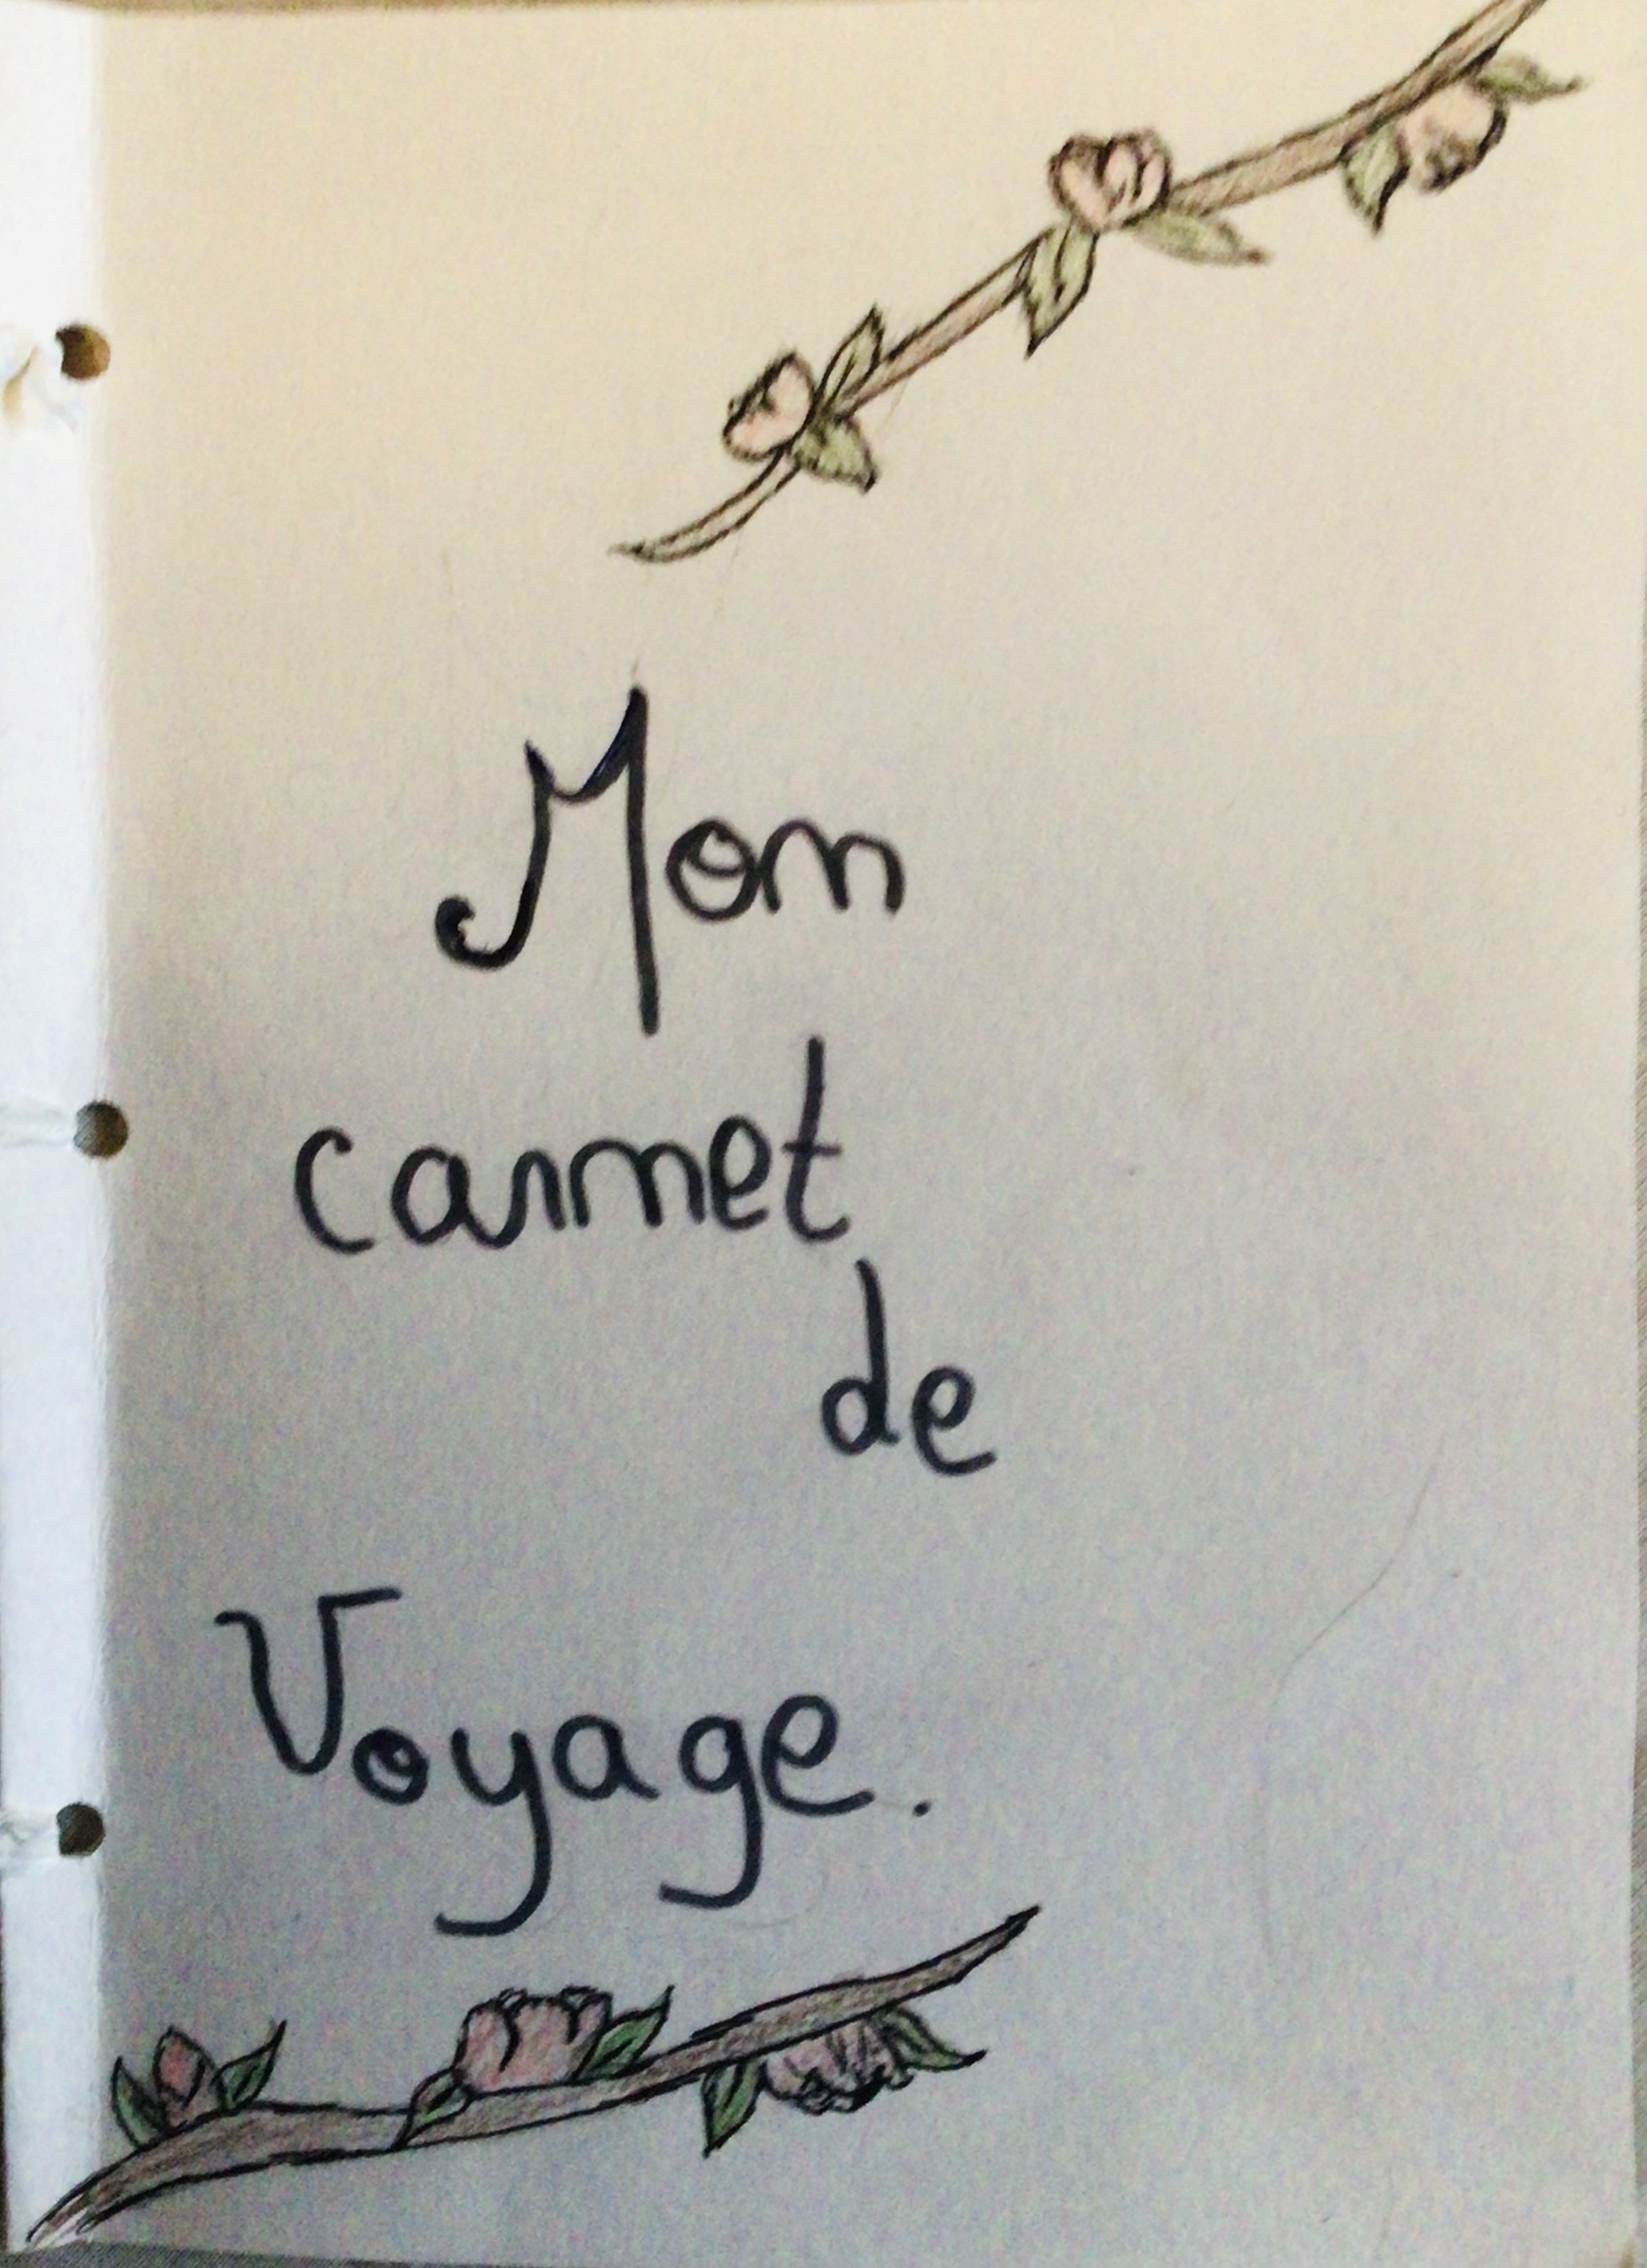 Mon
carnet
de
Voyage.